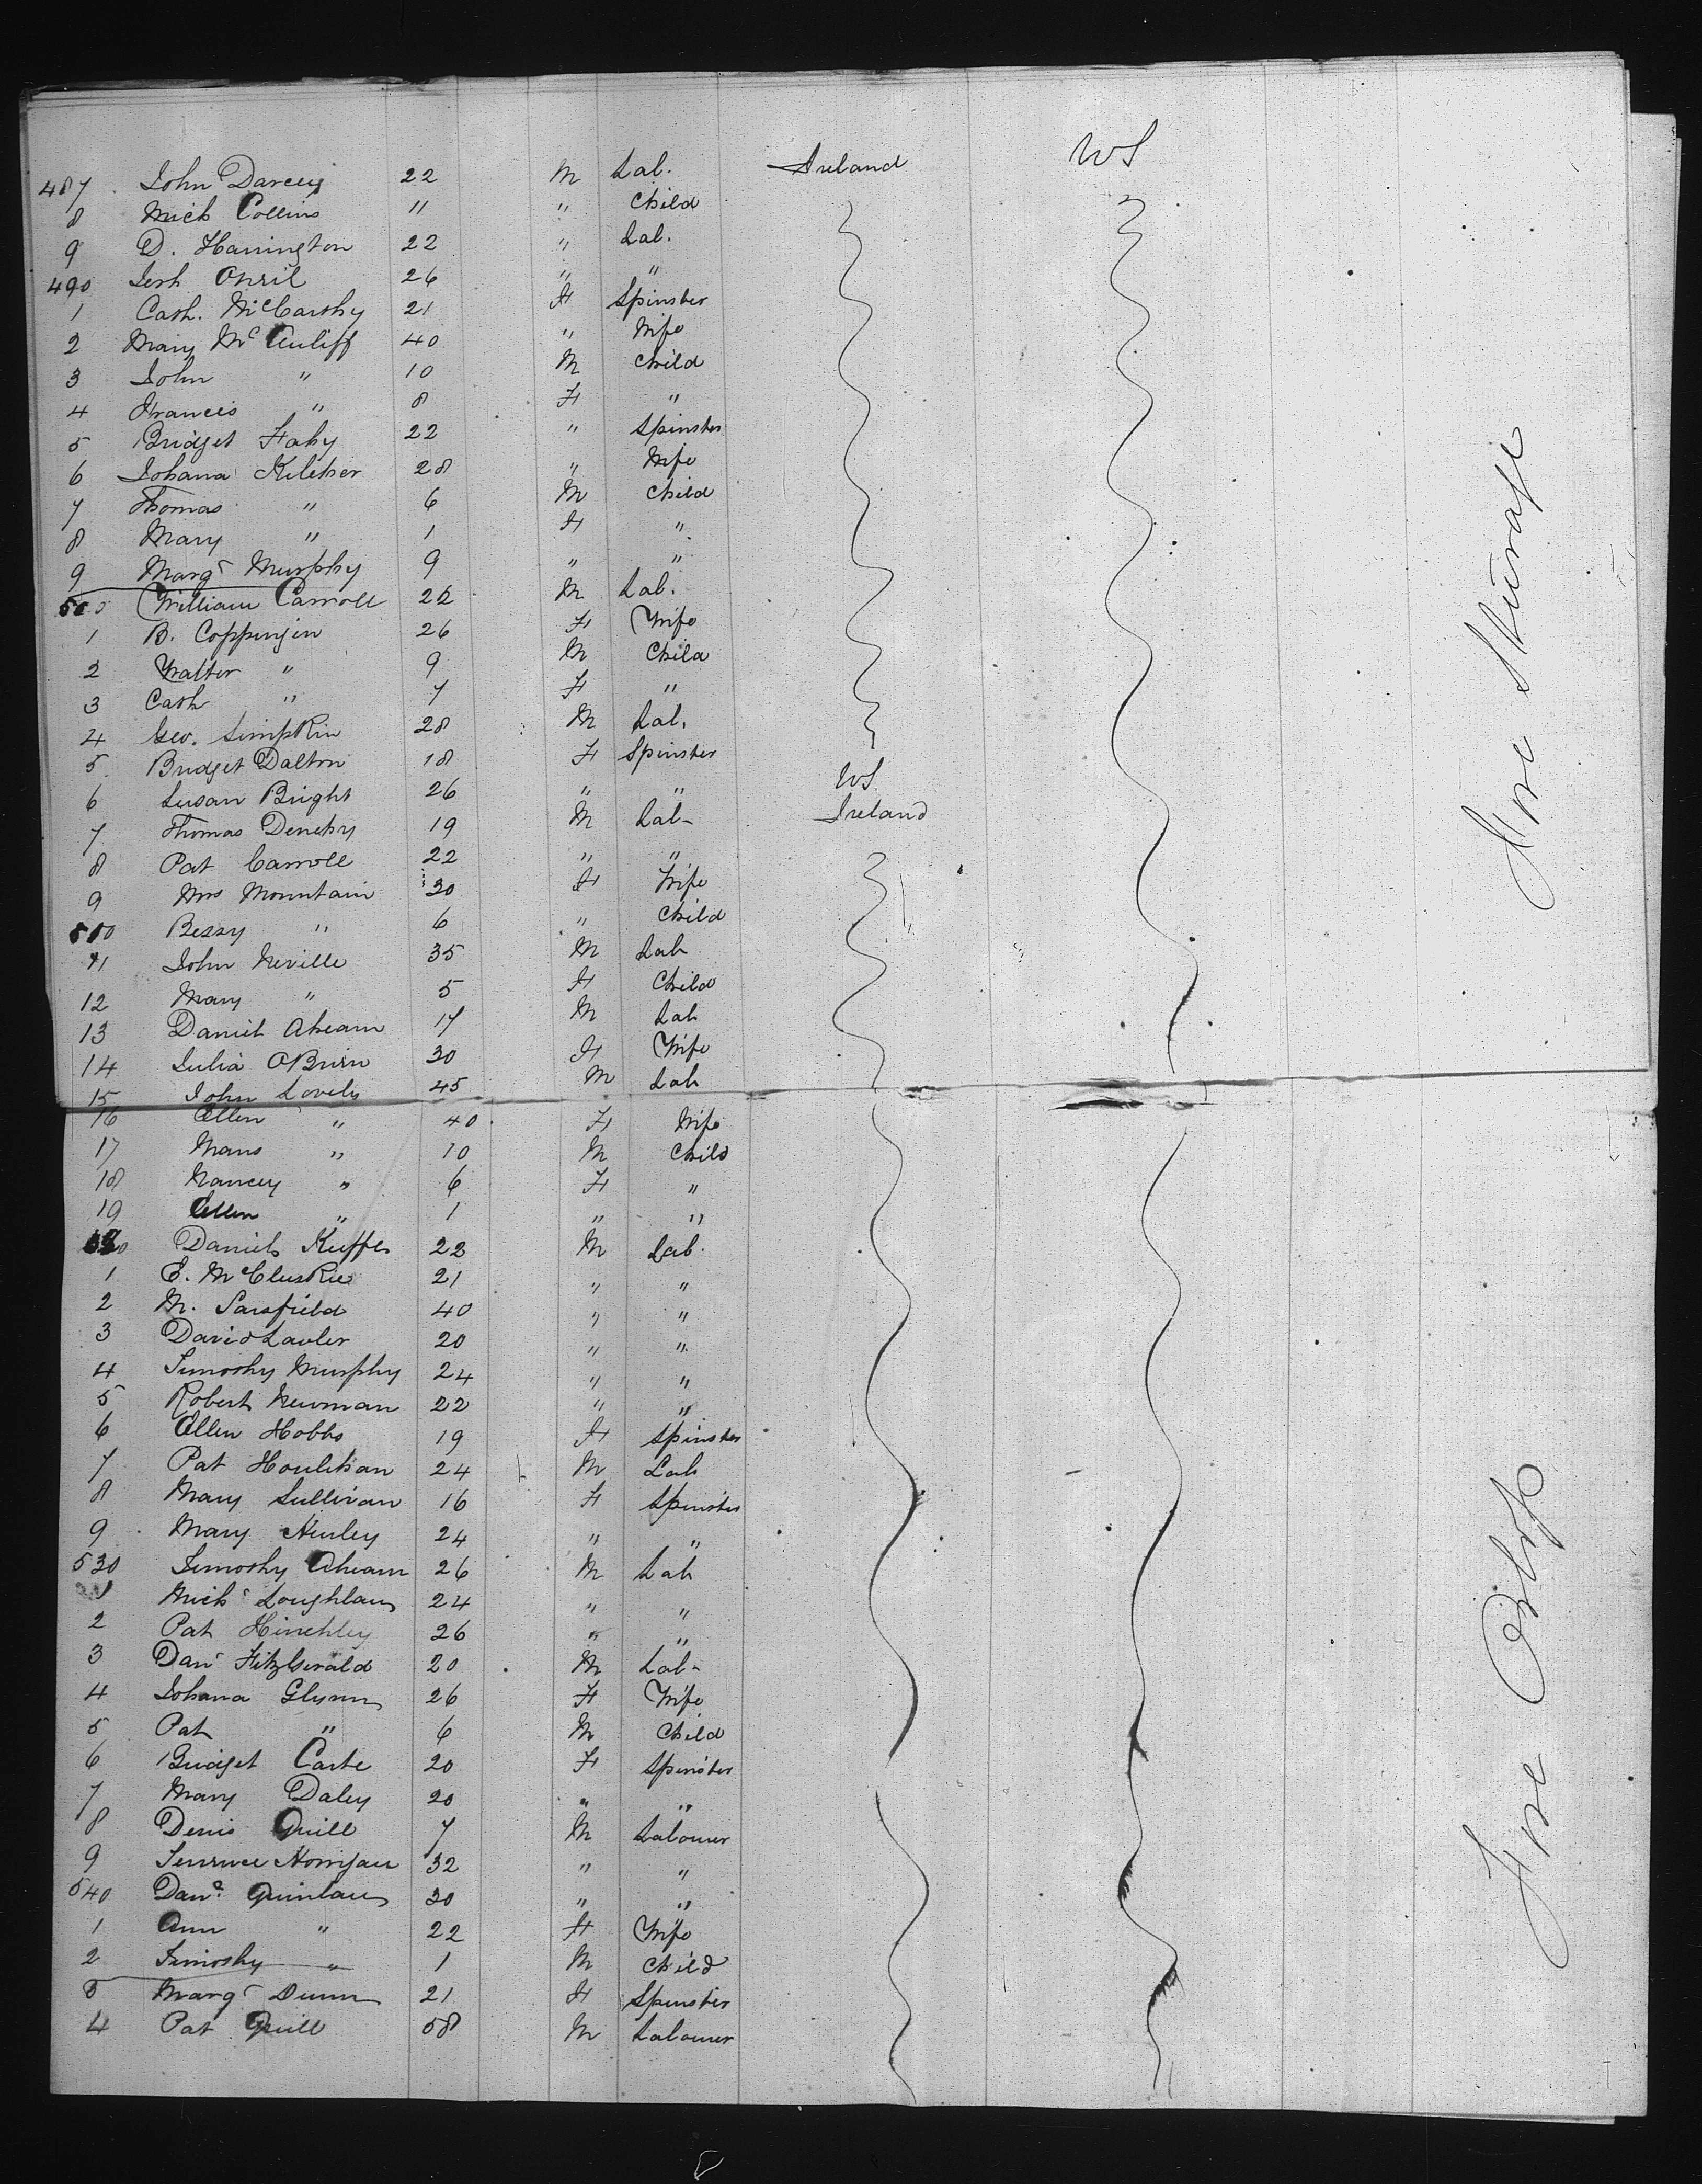 487 John Darcey 22 M Lab. Ireland US
8 Mick Collins 11 " Child
9 D. Harrington 22 " Lab.
490 Jerh 26 " "
1 Cath. McCarthy 21 F Spinster
2 Mary McAuliff 40 " Wife
3 John " 10 M Child
4 Francis " 8 F "
5 Bridget Fahy 22 " Spinster
6 Johana Kileher 28 " Wife
7 Thomas " 6 M Child
8 Mary " 1 F "
9 Margt Murphy 9 " "
500 William Carroll 22 M Lab.
1 B. Coppinjin 26 F Wife
2 Walter " 9 M Child
3 Cath " 7 F "
4 Geo. Simpkin 28 M Lab.
5 Bridget Dalton 18 F Spinster
6 Susan Bright 26 " " US
7 Thomas Denehy 19 M Lab- Ireland
8 Pat Carroll 22 " "
9 Mrs Mountain 30 F Wife
510 Bessy " 6 " Child
11 John Neville 35 M Lab
12 Mary " 5 F Child
13 Daniel Ahearn 17 M Lab
14 Julia OBrien 30 F Wife
15 John Lovely 45 M Lab
16 Ellen " 40 F Wife
17 " 10 M Child
18 Nancy " 6 F "
19 Ellen " 1 " "
520 Daniel Kieffe 22 M Lab.
1 E. McCluskie 21 " "
2 M. Sarsfield 40 " "
3 David Lawler 20 " "
4 Timothy Murphy 24 " "
5 Robert Newman 22 " "
6 Ellen Hobbs 19 F Spinster
7 Pat Houlihan 24 M Lab
8 Mary Sullivan 16 F Spinster
9 Mary Hurley 24 " "
530 Timothy Ahearn 26 M Lab
1 Mick Loughlan 24 " "
2 Pat Hinchley 26 " "
3 Danl FitzGerald 20 M Lab-
4 Johana Glynn 26 F Wife
5 Pat " 6 M Child
6 Bridget Carte 20 F Spinster
7 Mary Daley 20 " "
8 Denis Quill 7 M Labourer
9 Terrence Horrijan 32 " "
540 Danl Quinlan 30 " "
1 Ann " 22 F Wife
2 Timothy " 1 M Child
3 Margt Dunn 21 F Spinster
4 Pat Quill 58 M Labourer
Fore Steerage
Fore Orlop